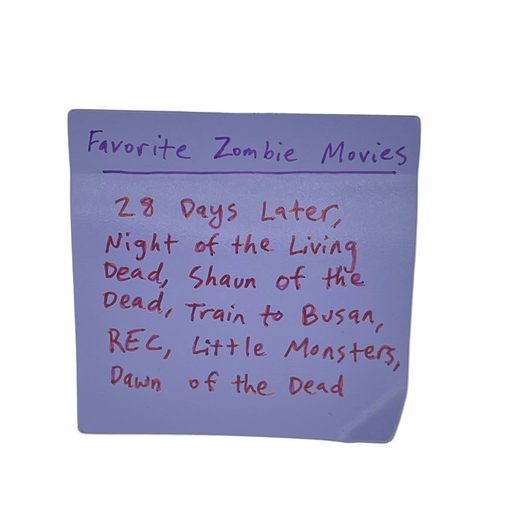 Favorite Zombie Movies
28 Days Later,
Night of the Living
Dead, Shaun of the
Dead, Train to Busan,
REC, Little Monsters,
Dawn of the Dead